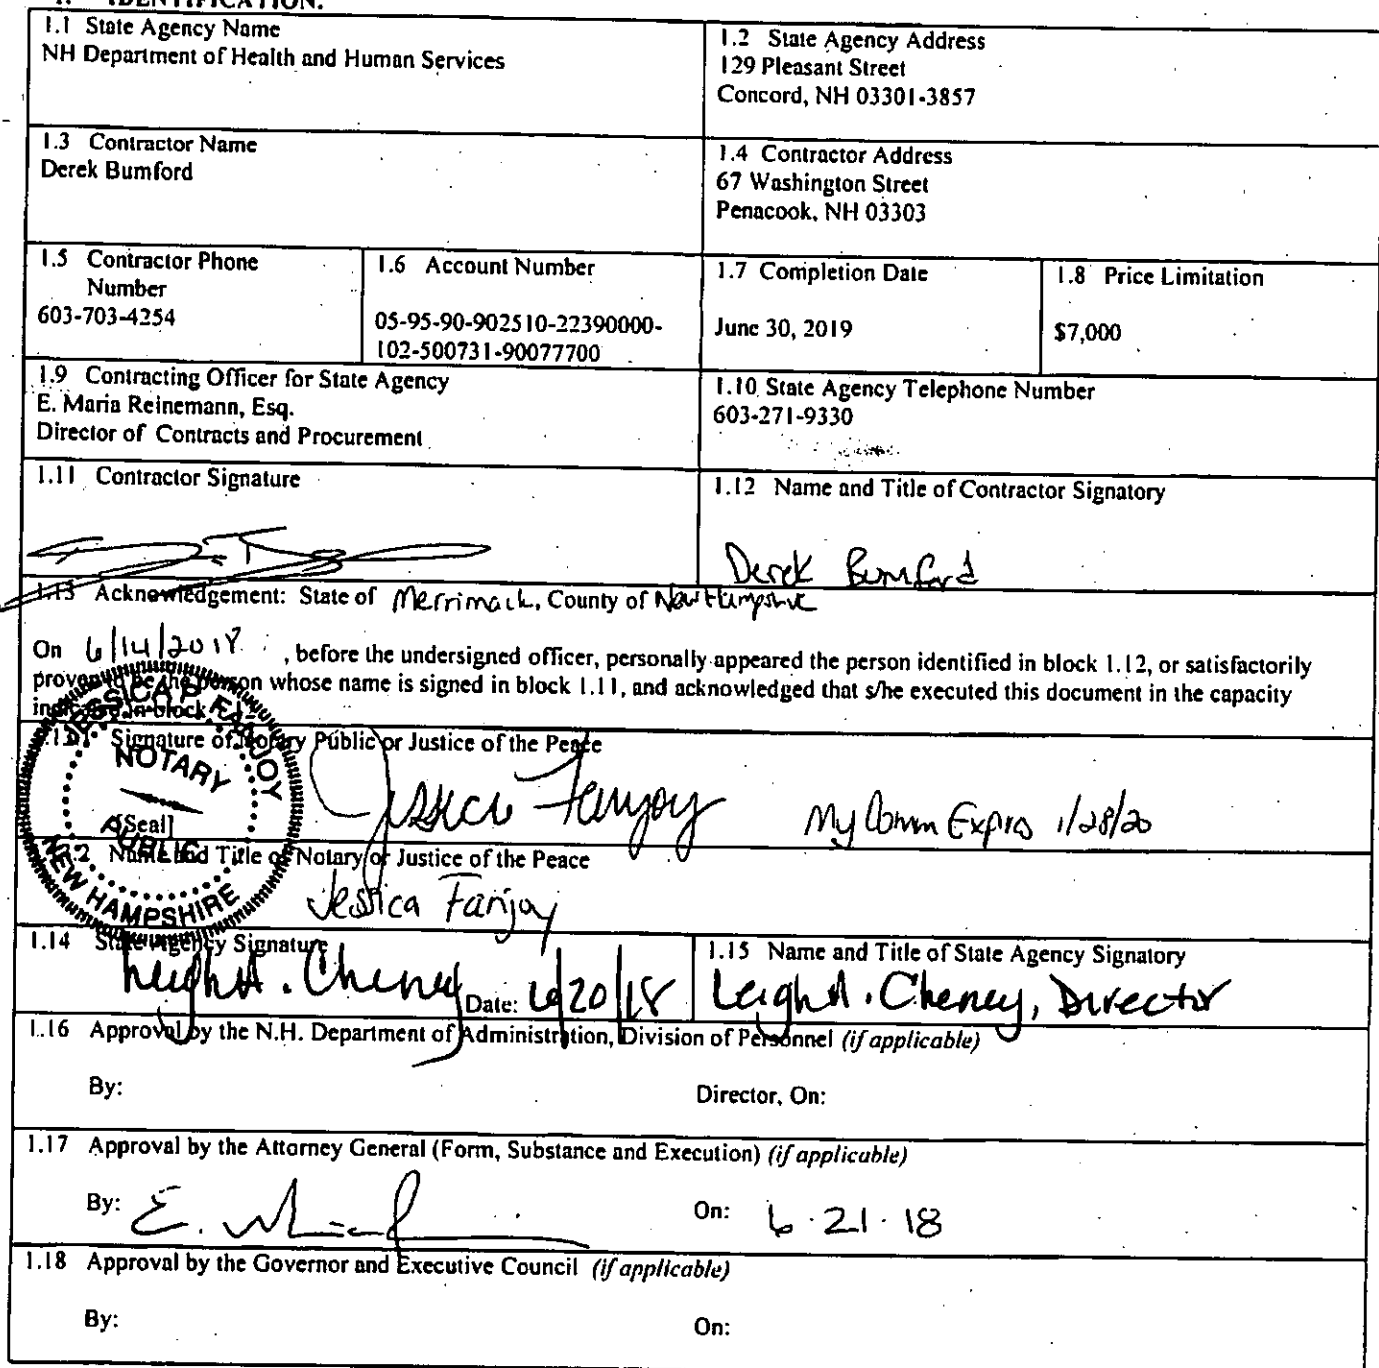 1. IDENTIFICATION.
1.1 State Agency Name
NH Department of Health and Human Services
1.2 State Agency Address
129 Pleasant Street
Concord, NH 03301-3857
1.3 Contractor Name
Derek Bumford
1.4 Contractor Address
67 Washington Street
Penacook, NH 03303
1.5 Contractor Phone
Number
603-703-4254
1.6 Account Number
05-95-90-902510-22390000-
102-500731-90077700
1.7 Completion Date
June 30, 2019
1.8 Price Limitation
$7,000
1.9 Contracting Officer for State Agency
E. Maria Reinemann, Esq.
Director of Contracts and Procurement
1.10 State Agency Telephone Number
603-271-9330
1.11 Contractor Signature
1.12 Name and Title of Contractor Signatory
Derek Bumford
1.13 Acknowledgement: State of Merrimack, County of New Hampshire
On 6/14/2018, before the undersigned officer, personally appeared the person identified in block 1.12, or satisfactorily
proven to be the person whose name is signed in block 1.11, and acknowledged that s/he executed this document in the capacity
indicated in block
1.13.1 Signature of Notary Public or Justice of the Peace
JESSICA P. FANJOY
NOTARY
PUBLIC
NEW HAMPSHIRE
[Seal]
Jessica Fanjoy My Comm Expires 1/28/20
1.13.2 Name and Title of Notary or Justice of the Peace
Jessica Fanjoy
1.14 State Agency Signature
Leigh A. Cheney Date: 6/20/18
1.15 Name and Title of State Agency Signatory
Leigh A. Cheney, Director
1.16 Approval by the N.H. Department of Administration, Division of Personnel (if applicable)
By: Director, On:
1.17 Approval by the Attorney General (Form, Substance and Execution) (if applicable)
By: On: 6.21.18
1.18 Approval by the Governor and Executive Council (if applicable)
By: On: